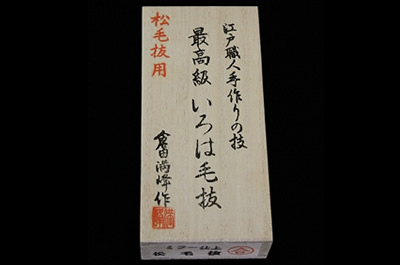 江戸職人手作りの技
最高級 いろは毛抜
松毛抜用
倉田満峰作
ミラー仕上
松毛抜